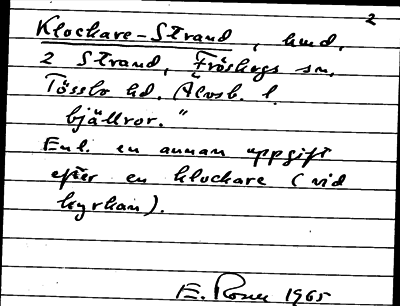 2
Klockare-Strand, hmd.
2 Strand, Fröskogs sn,
Tössbo hd. Älvsb. l.
bjällror."
Enl. en annan uppgift
efter en klockare (vid
kyrkan).
E. 1965